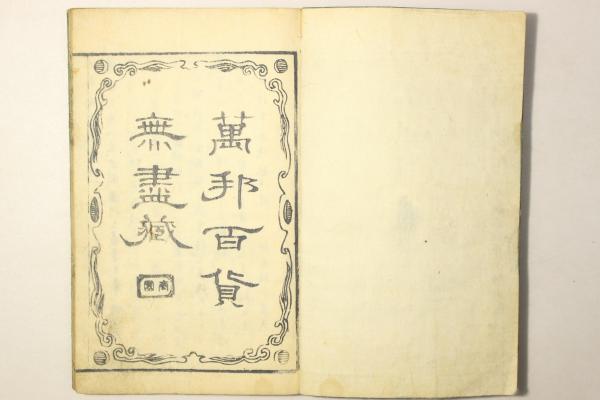 萬邦百貨
無盡藏